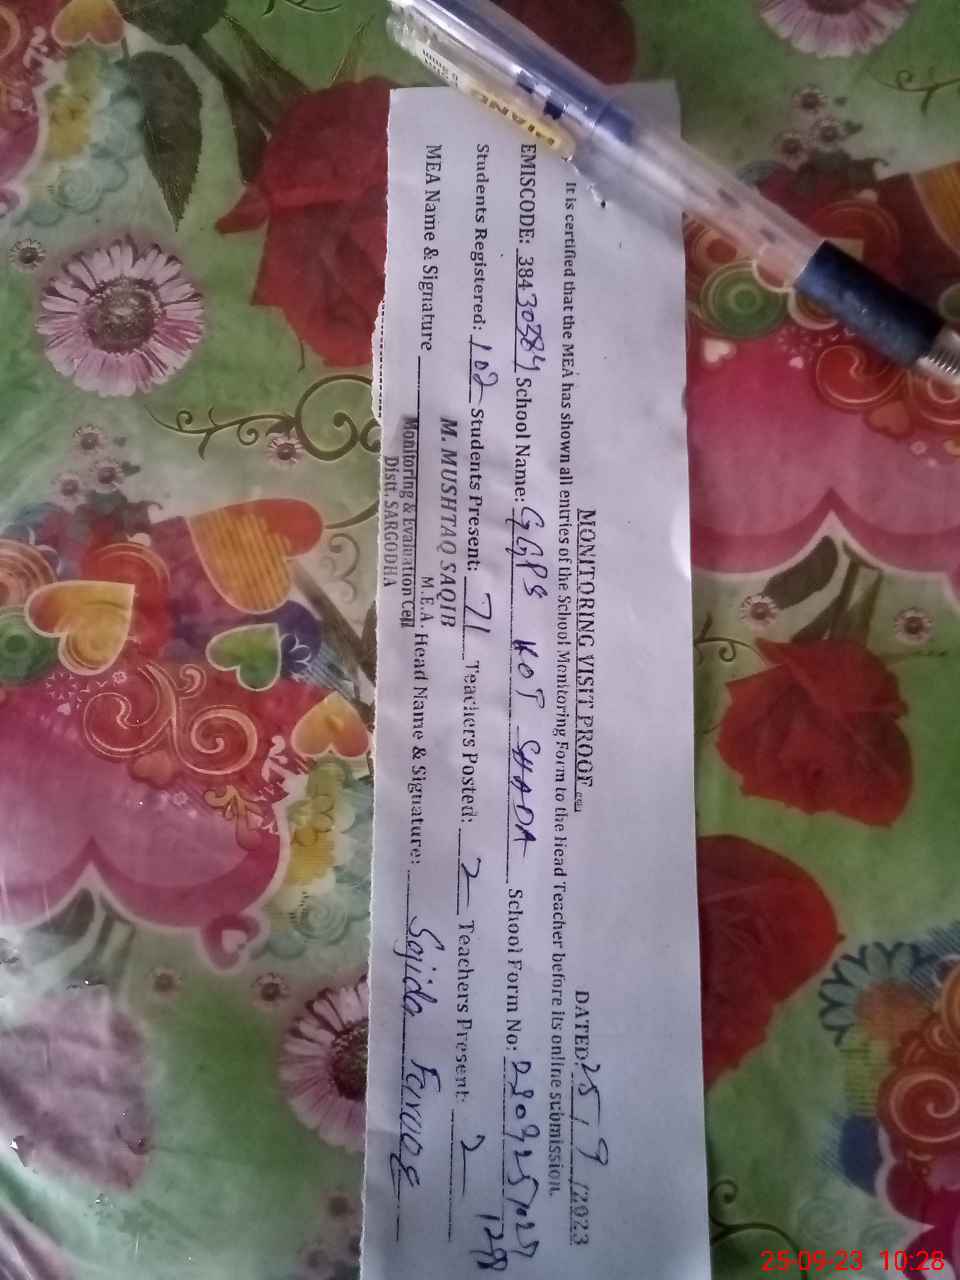 MONITORING VISIT PROOF
DATED: 25/9/2023
It is certified that the MEA has shown all entries of the School Monitoring Form to the Head Teacher before its online submission.
EMISCODE: 38430384 School Name: GGPS KOT SHADA School Form No:
Students Registered: 102 Students Present: 71 Teachers Posted: 2 Teachers Present: 2
MEA Name & Signature Head Name & Signature: Sajida
M. MUSHTAQ SAQIB
M.E.A.
Monitoring & Evaluation Cell
Distt. SARGODHA
PIANO
25-09-23 10:28